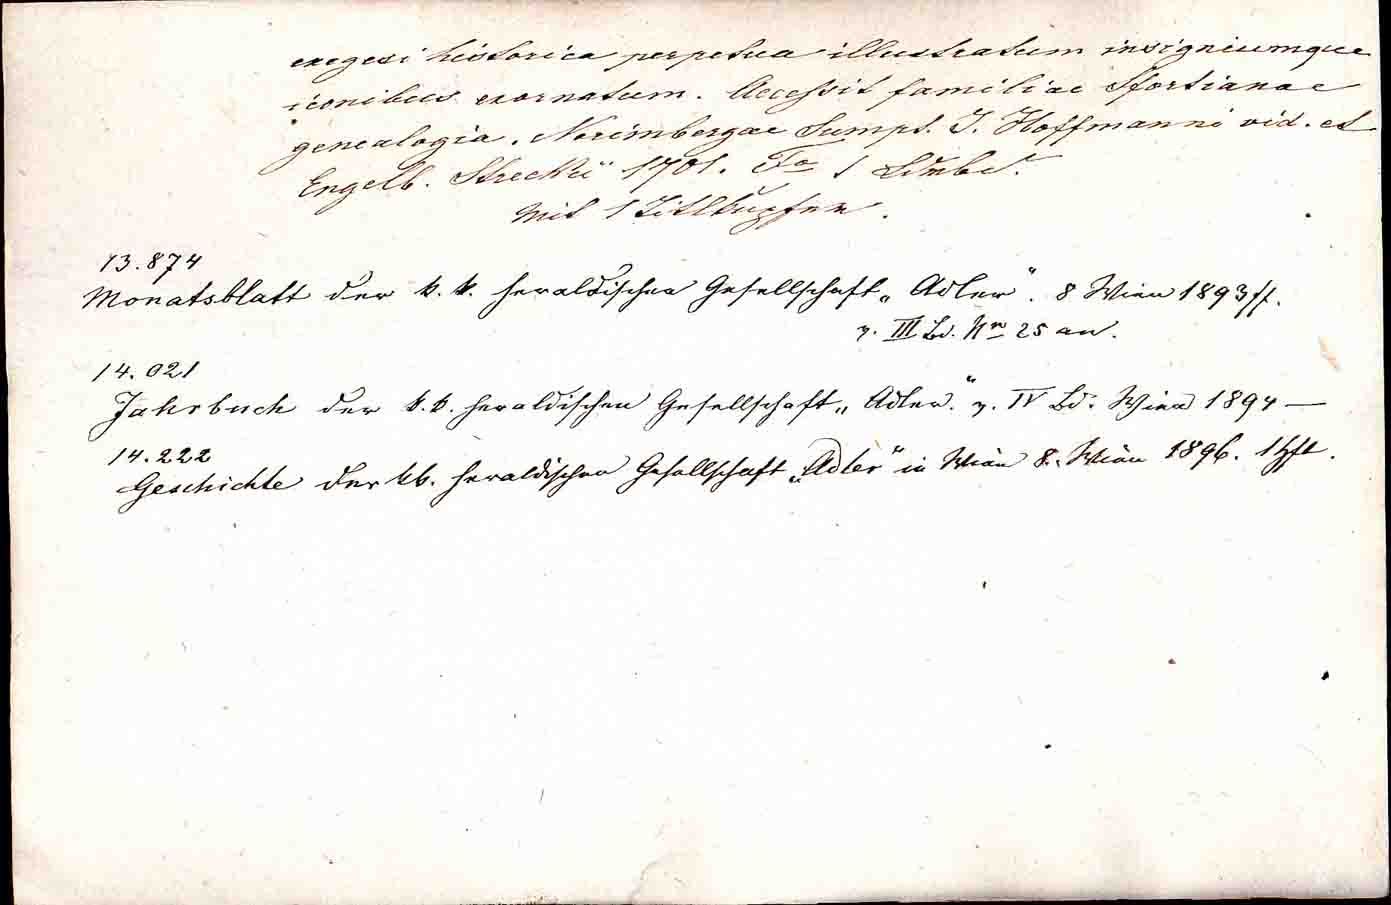 exegesi historica perpetua illustratum insigniumque
iconibus exornatum. Accessit familiae Sfortianae
genealogia. Norimbergae Sumpt. J. Hoffmanni vid. et
Engelb. Streckii 1701. Fo 1 Ldrbd.
Mit 1 Titelkupfer.
13.874
Monatsblatt der k. k. heraldischen Gesellschaft „Adler“. 8 Wien 1893 ff.
v. III Bd. Nro 25 an.
14.021
Jahrbuch der k. k. heraldischen Gesellschaft „Adler“. v. IV Bd. Wien 1894 —
14.222
Geschichte der kk. heraldischen Gesellschaft „Adler“ in Wien 8. Wien 1896. 1 Hft.